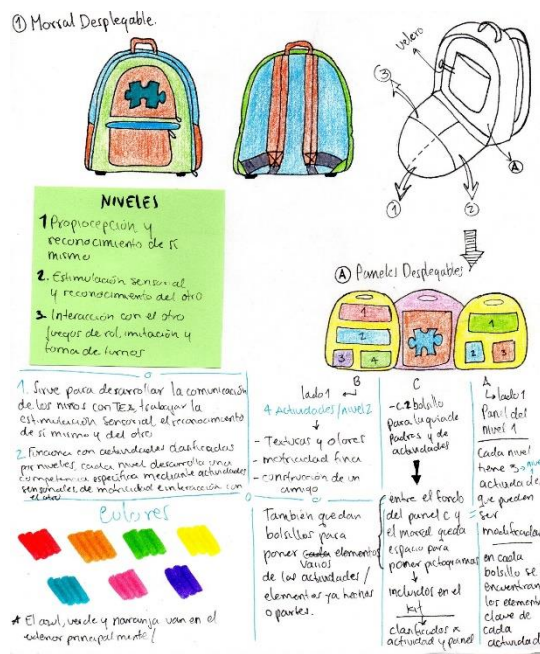 ① Morral Desplegable.
velcro
③
Ⓐ
①
②
NIVELES
1 Propiocepción y
reconocimiento de sí
mismo
2. Estimulación sensorial
y reconocimiento del otro
3. Interacción con el otro
juegos de rol, imitación y
toma de turnos
Ⓐ Paneles Desplegables
1
2
3
4
1
2
3
B
C
A
1. Sirve para desarrollar la comunicación
de los niños con TEA, trabajar la
estimulación sensorial, el reconocimiento
de sí mismo y del otro
2. Funciona con actividades clasificadas
por niveles, cada nivel desarrolla una
competencia específica mediante actividades
sensoriales, de motricidad e interacción con
el otro
Colores
* El azul, verde y naranja van en el
exterior principalmente/
lado 1
4 Actividades/nivel 2
- Texturas y olores
- motricidad fina
- construcción de un
amigo
También quedan
bolsillos para
poner elementos
varios
de las actividades/
elementos ya hechos
o partes.
-C.2 bolsillo
Para la guía de
Padres y de
actividades
entre el fondo
del panel C y
el morral queda
espacio para
poner pictogramas
incluidos en el
kit
clasificados x
actividad y panel
lado 1
Panel del
nivel 1
Cada nivel
tiene 3
actividades
que pueden
ser
modificadas
en cada
bolsillo se
encuentran
los elementos
clave de
cada
actividad